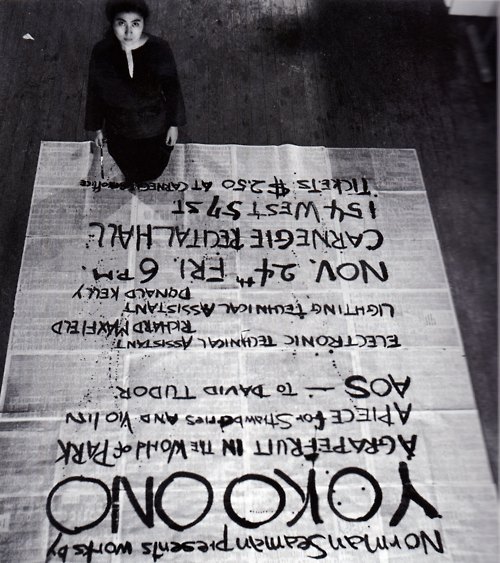 Norman Seaman presents works by
YOKO ONO
A GRAPEFRUIT IN THE WORLD OF PARK
A PIECE for Strawberries AND VIOLIN
AOS — TO DAVID TUDOR
ELECTRONIC TECHNICAL ASSISTANT
RICHARD MAXFIELD
LIGHTING TECHNICAL ASSISTANT
DONALD KELLY
NOV. 24th FRI. 6 P.M.
CARNEGIE RECITAL HALL
154 WEST 57 ST
TICKETS $2.50 AT CARNEGIE office